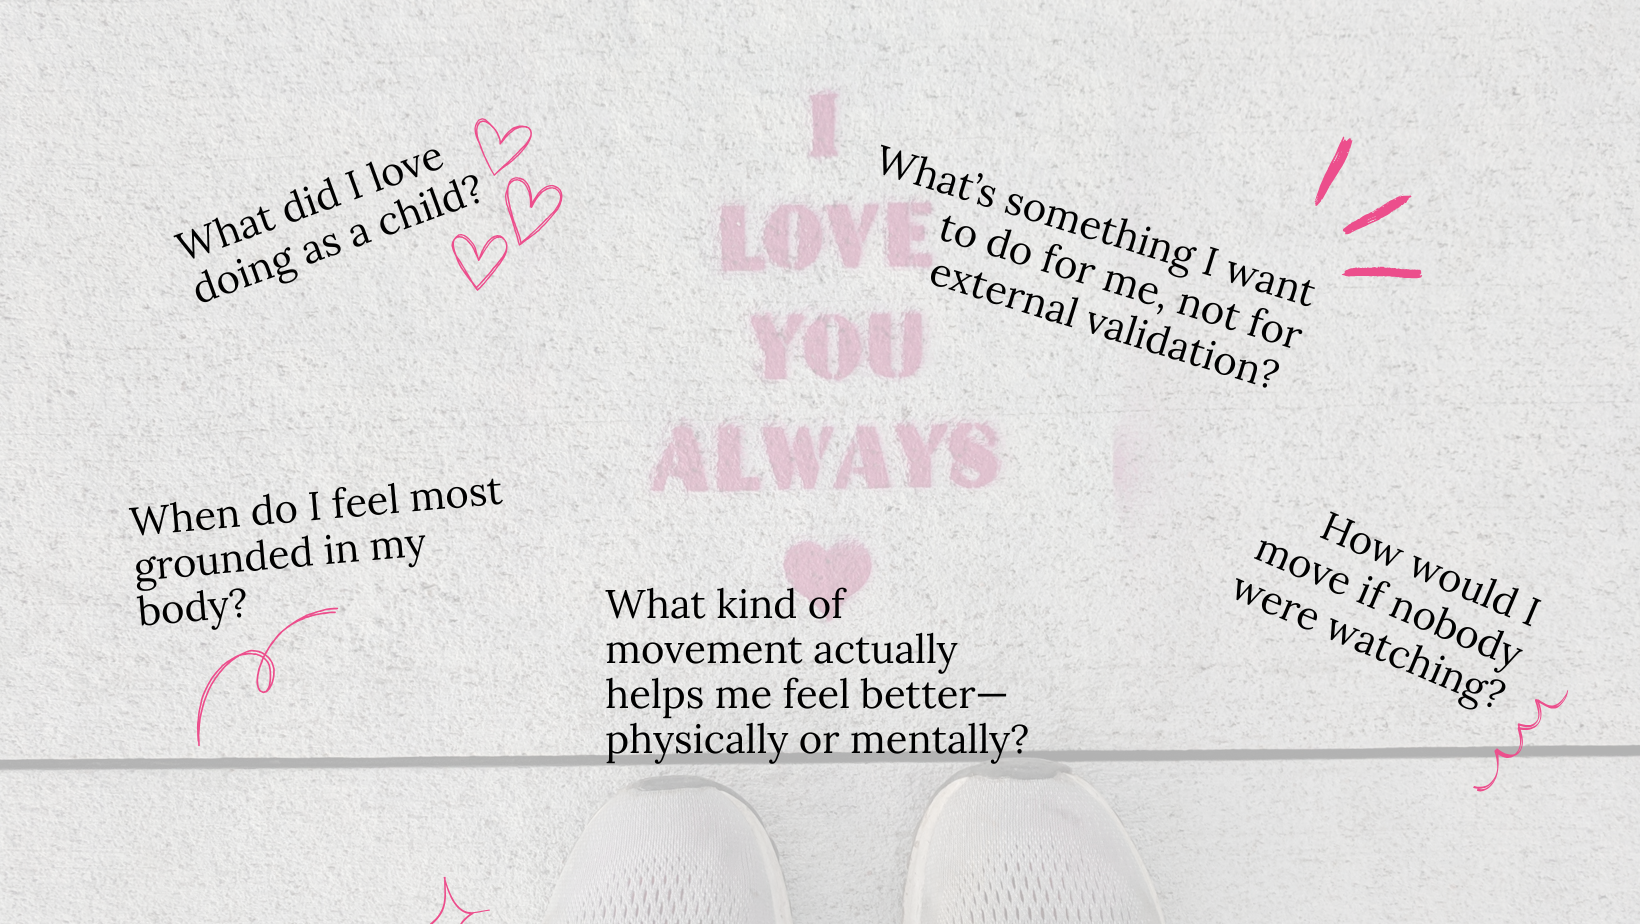 I
LOVE
YOU
ALWAYS
What did I love
doing as a child?
What’s something I want
to do for me, not for
external validation?
When do I feel most
grounded in my
body?
What kind of
movement actually
helps me feel better—
physically or mentally?
How would I
move if nobody
were watching?